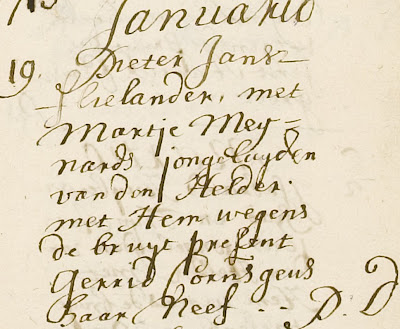 Januario
19. Pieter Jansz
flielander, met
Martje Mey=
nards jongeluyden
van den Helder.
met Hem wegens
de bruyt present
Gerrid Corns geus
haar Neef .. P. D